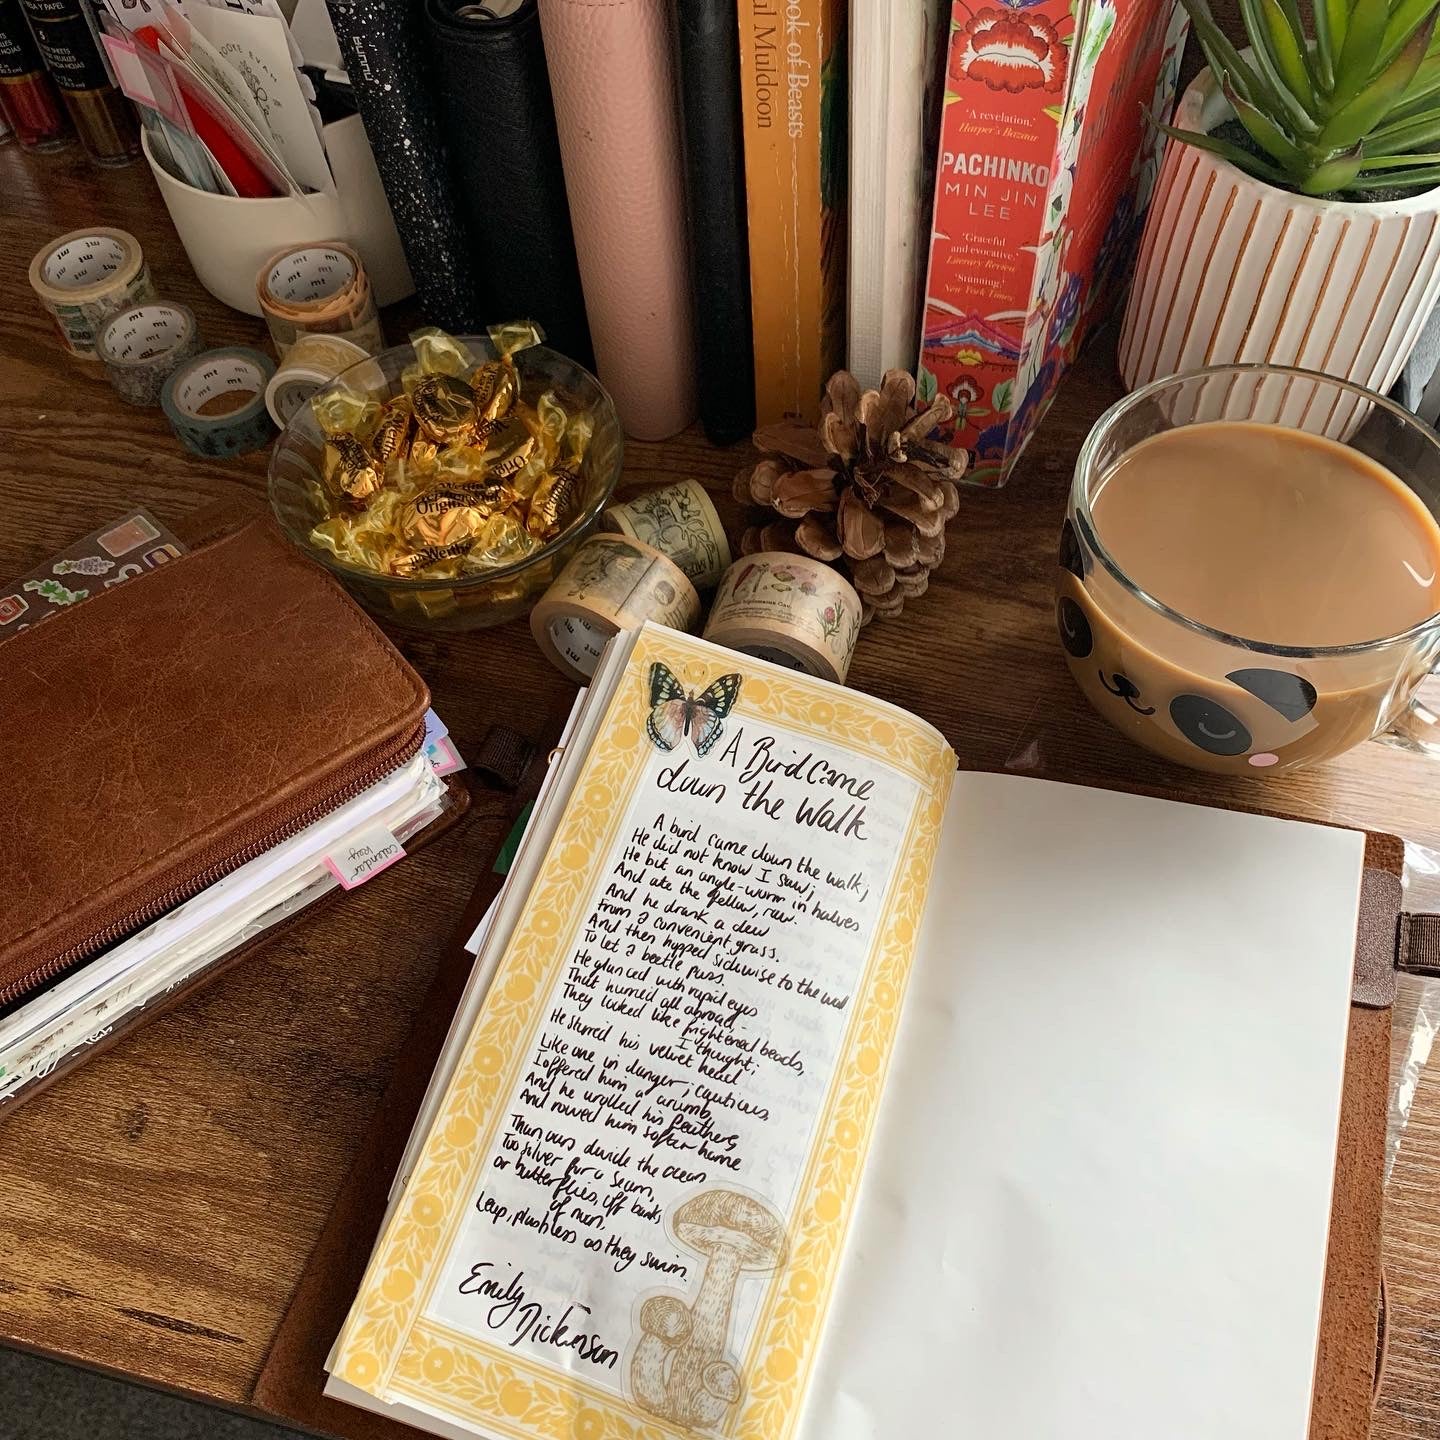 5
mt
mt
mt
mt
Werther's
Original
ook of Beasts
ul Muldoon
'A revelation.'
Harper's Bazaar
PACHINKO
MIN JIN
LEE
'Graceful
and evocative.'
Literary Review
'Stunning.'
New York Times
calendar
key
A Bird Came
down the Walk
A bird came down the walk;
He did not know I saw;
He bit an angle-worm in halves
And ate the fellow, raw.
And he drank a dew
From a convenient grass.
And then hopped sidewise to the wall
To let a beetle pass.
He glanced with rapid eyes
That hurried all abroad -
They looked like frightened beads,
I thought;
He stirred his velvet head
Like one in danger; cautious,
I offered him a crumb,
And he unrolled his feathers
And rowed him softer home
Than oars divide the ocean
Too silver for a seam,
or butterflies, off banks
of noon,
Leap, plashless as they swim.
Emily
Dickinson